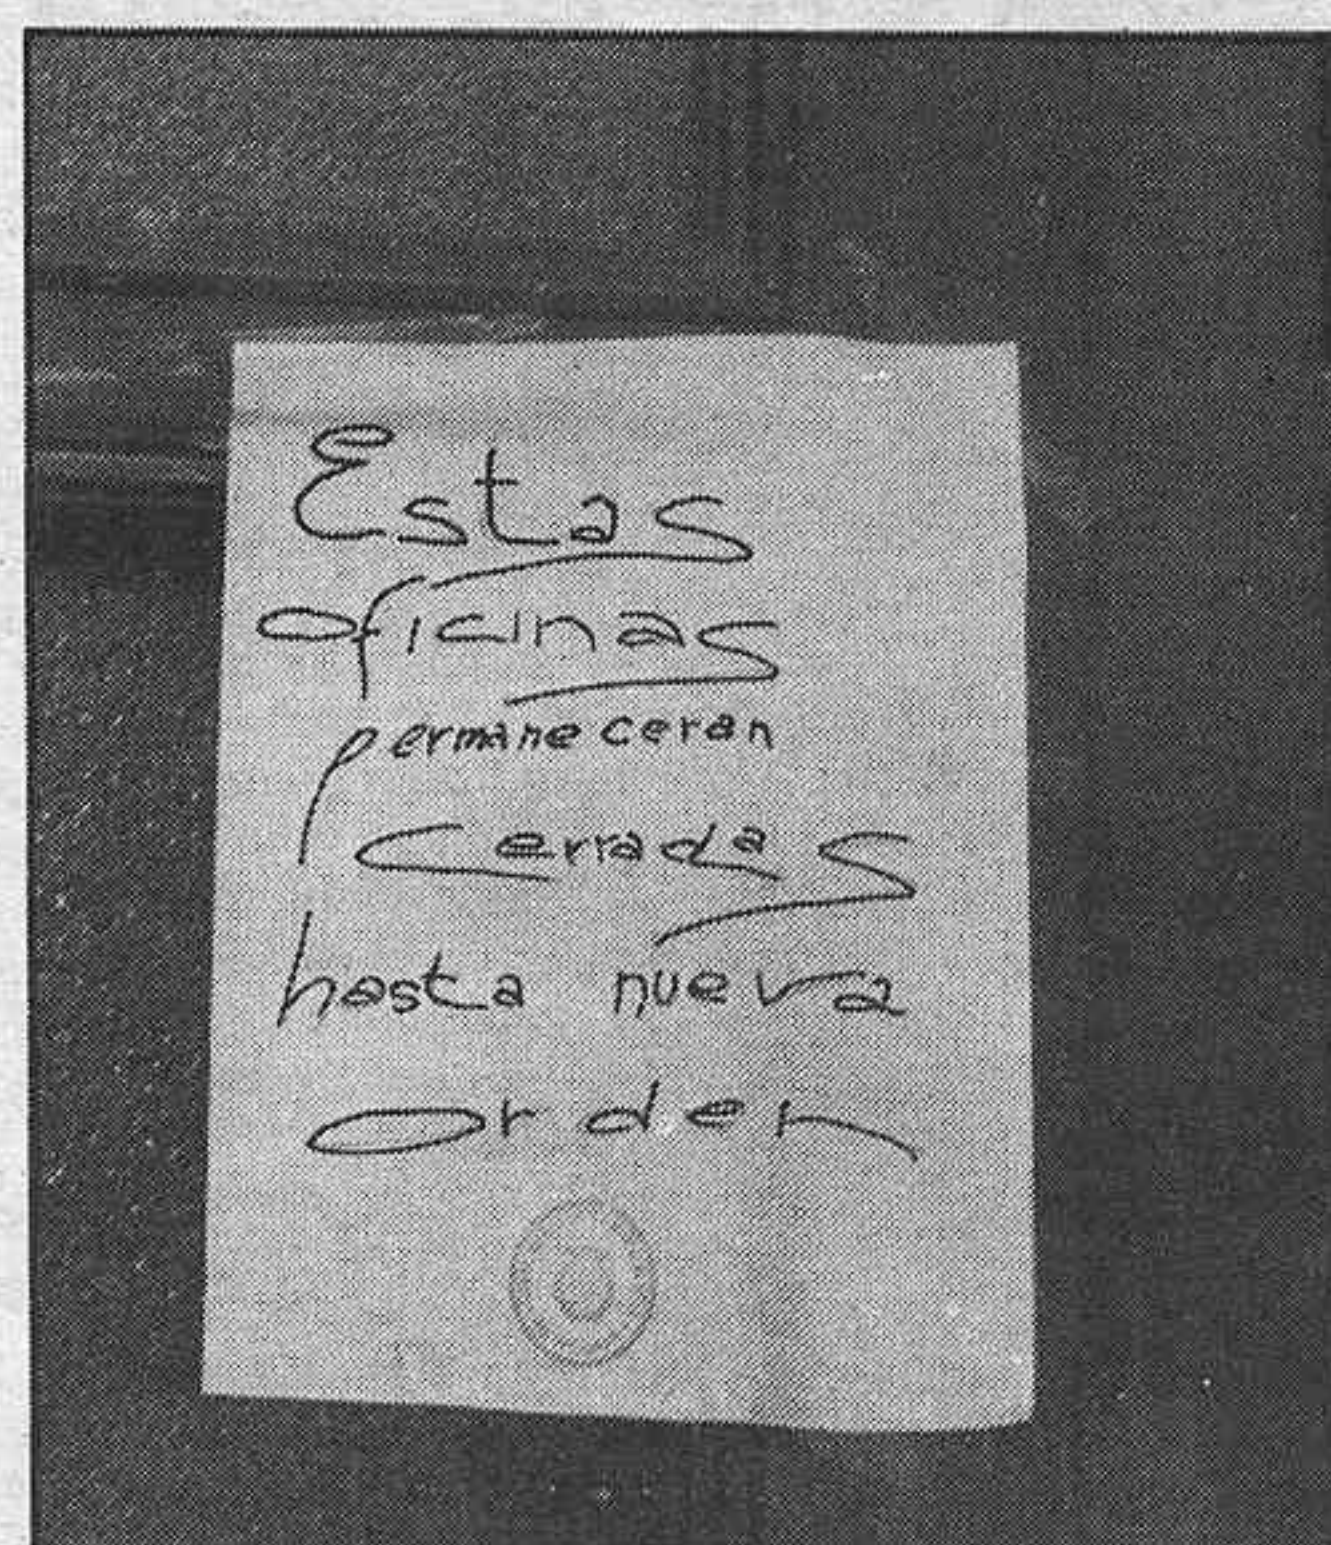 Estas
oficinas
permaneceran
cerradas
hasta nueva
orden